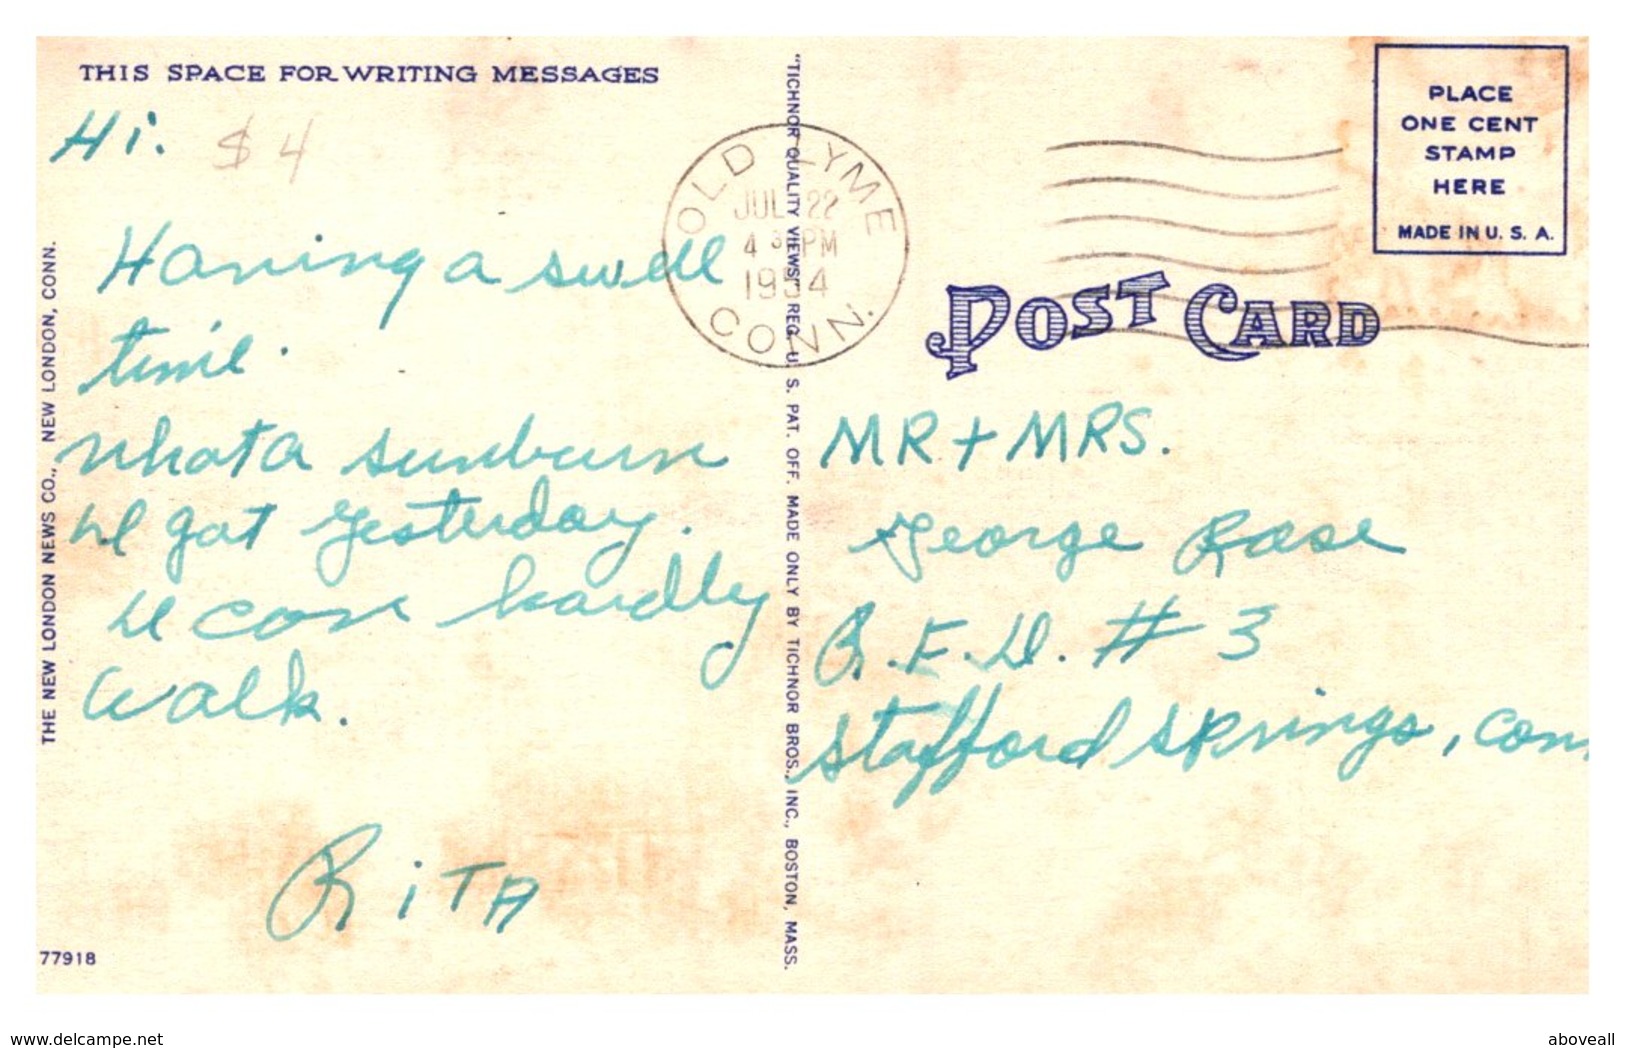 THIS SPACE FOR WRITING MESSAGES
Hi.
$4
Having a swell
time.
What a sunburn
we got yesterday.
We can hardly
walk.
RITA
77918
THE NEW LONDON NEWS CO., NEW LONDON, CONN.
"TICHNOR QUALITY VIEWS," REG. U. S. PAT. OFF. MADE ONLY BY TICHNOR BROS., INC., BOSTON, MASS.
OLD LYME
JUL 22
4 PM
1954
CONN.
PLACE
ONE CENT
STAMP
HERE
MADE IN U. S. A.
POST CARD
MR + MRS.
George Rose
R.F.D. # 3
Stafford Springs, Conn
www.delcampe.net
aboveall